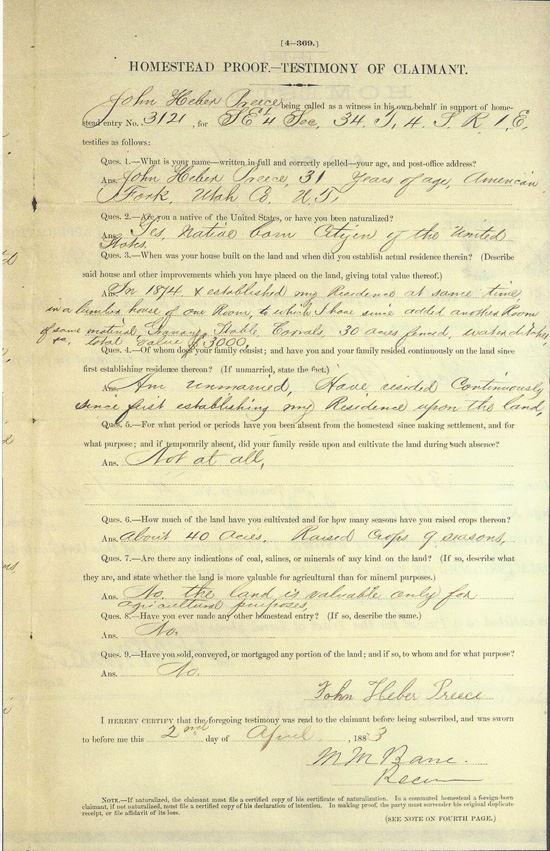 [4—369.]
HOMESTEAD PROOF.—TESTIMONY OF CLAIMANT.
John Heber Preece being called as a witness in his own behalf in support of home-
stead entry No. 3121, for SE 4 Sec. 34 T. 4. S. R 1. E.
testifies as follows:
Ques. 1.—What is your name—written in full and correctly spelled—your age, and post-office address?
Ans. John Heber Preece, 31 Years of age, American
Fork, Utah Co. U.T.
Ques. 2.—Are you a native of the United States, or have you been naturalized?
Ans. Yes, Native born Citizen of the United
States.
Ques. 3.—When was your house built on the land and when did you establish actual residence therein? (Describe
said house and other improvements which you have placed on the land, giving total value thereof.)
Ans. In 1874, & established my Residence at same time
in a lumber house of one Room, to which I have since added another Room
of same material, Granary, Stable, Corrals, 30 acres fenced, water ditches
&c. total value $3000.
Ques. 4.—Of whom does your family consist; and have you and your family resided continuously on the land since
first establishing residence thereon? (If unmarried, state the fact.)
A Am unmarried, Have resided Continuously
since first establishing my Residence upon the land,
Ques. 5.—For what period or periods have you been absent from the homestead since making settlement, and for
what purpose; and if temporarily absent, did your family reside upon and cultivate the land during such absence?
Ans. Not at all,
Ques. 6.—How much of the land have you cultivated and for how many seasons have you raised crops thereon?
Ans. About 40 acres. Raised Crops 9 seasons,
Ques. 7.—Are there any indications of coal, salines, or minerals of any kind on the land? (If so, describe what
they are, and state whether the land is more valuable for agricultural than for mineral purposes.)
Ans. No. the land is valuable only for
agricultural purposes,
Ques. 8.—Have you ever made any other homestead entry? (If so, describe the same.)
Ans. No.
Ques. 9.—Have you sold, conveyed, or mortgaged any portion of the land; and if so, to whom and for what purpose?
Ans. No.
John Heber Preece
I HEREBY CERTIFY that the foregoing testimony was read to the claimant before being subscribed, and was sworn
to before me this 2nd day of April, 1883
M M Bane.
NOTE.—If naturalized, the claimant must file a certified copy of his certificate of naturalization. In a commuted homestead a foreign-born
claimant, if not naturalized, must file a certified copy of his declaration of intention. In making proof, the party must surrender his original duplicate
receipt, or file affidavit of its loss.
(SEE NOTE ON FOURTH PAGE.)